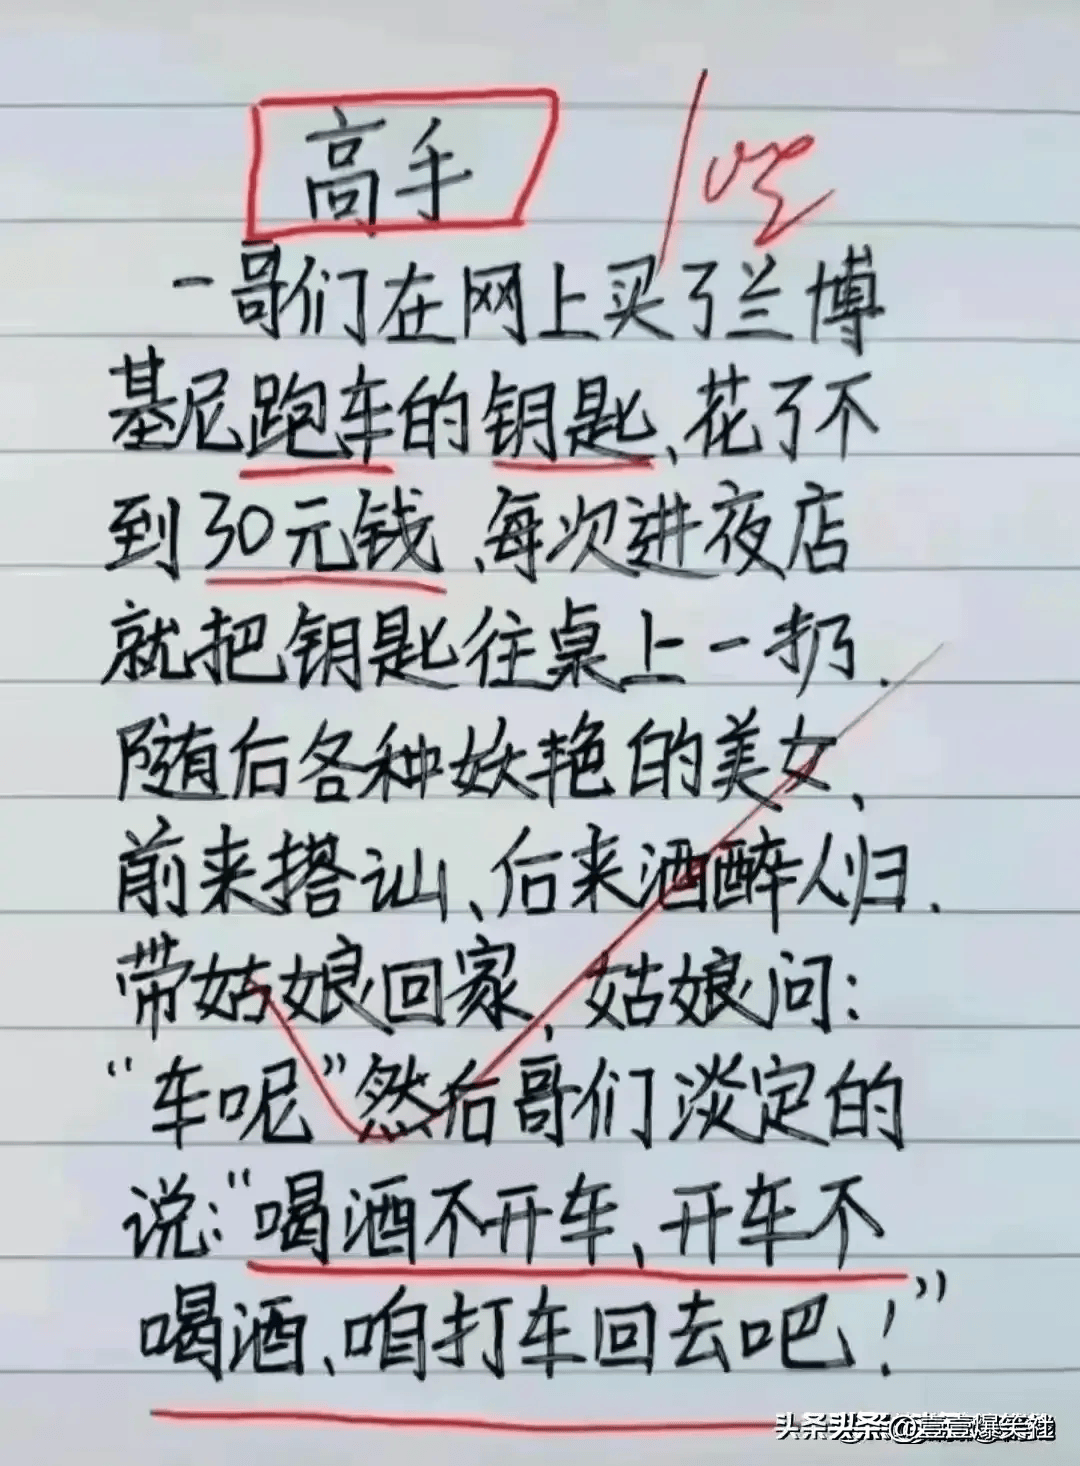 高手
一哥们在网上买了兰博
基尼跑车的钥匙、花了不
到30元钱、每次进夜店
就把钥匙往桌上一扔.
随后各种妖艳的美女、
前来搭讪、后来酒醉人归.
带姑娘回家、姑娘问:
“车呢”然后哥们淡定的
说:“喝酒不开车、开车不
喝酒、咱打车回去吧!”
头条 @壹壹爆笑社